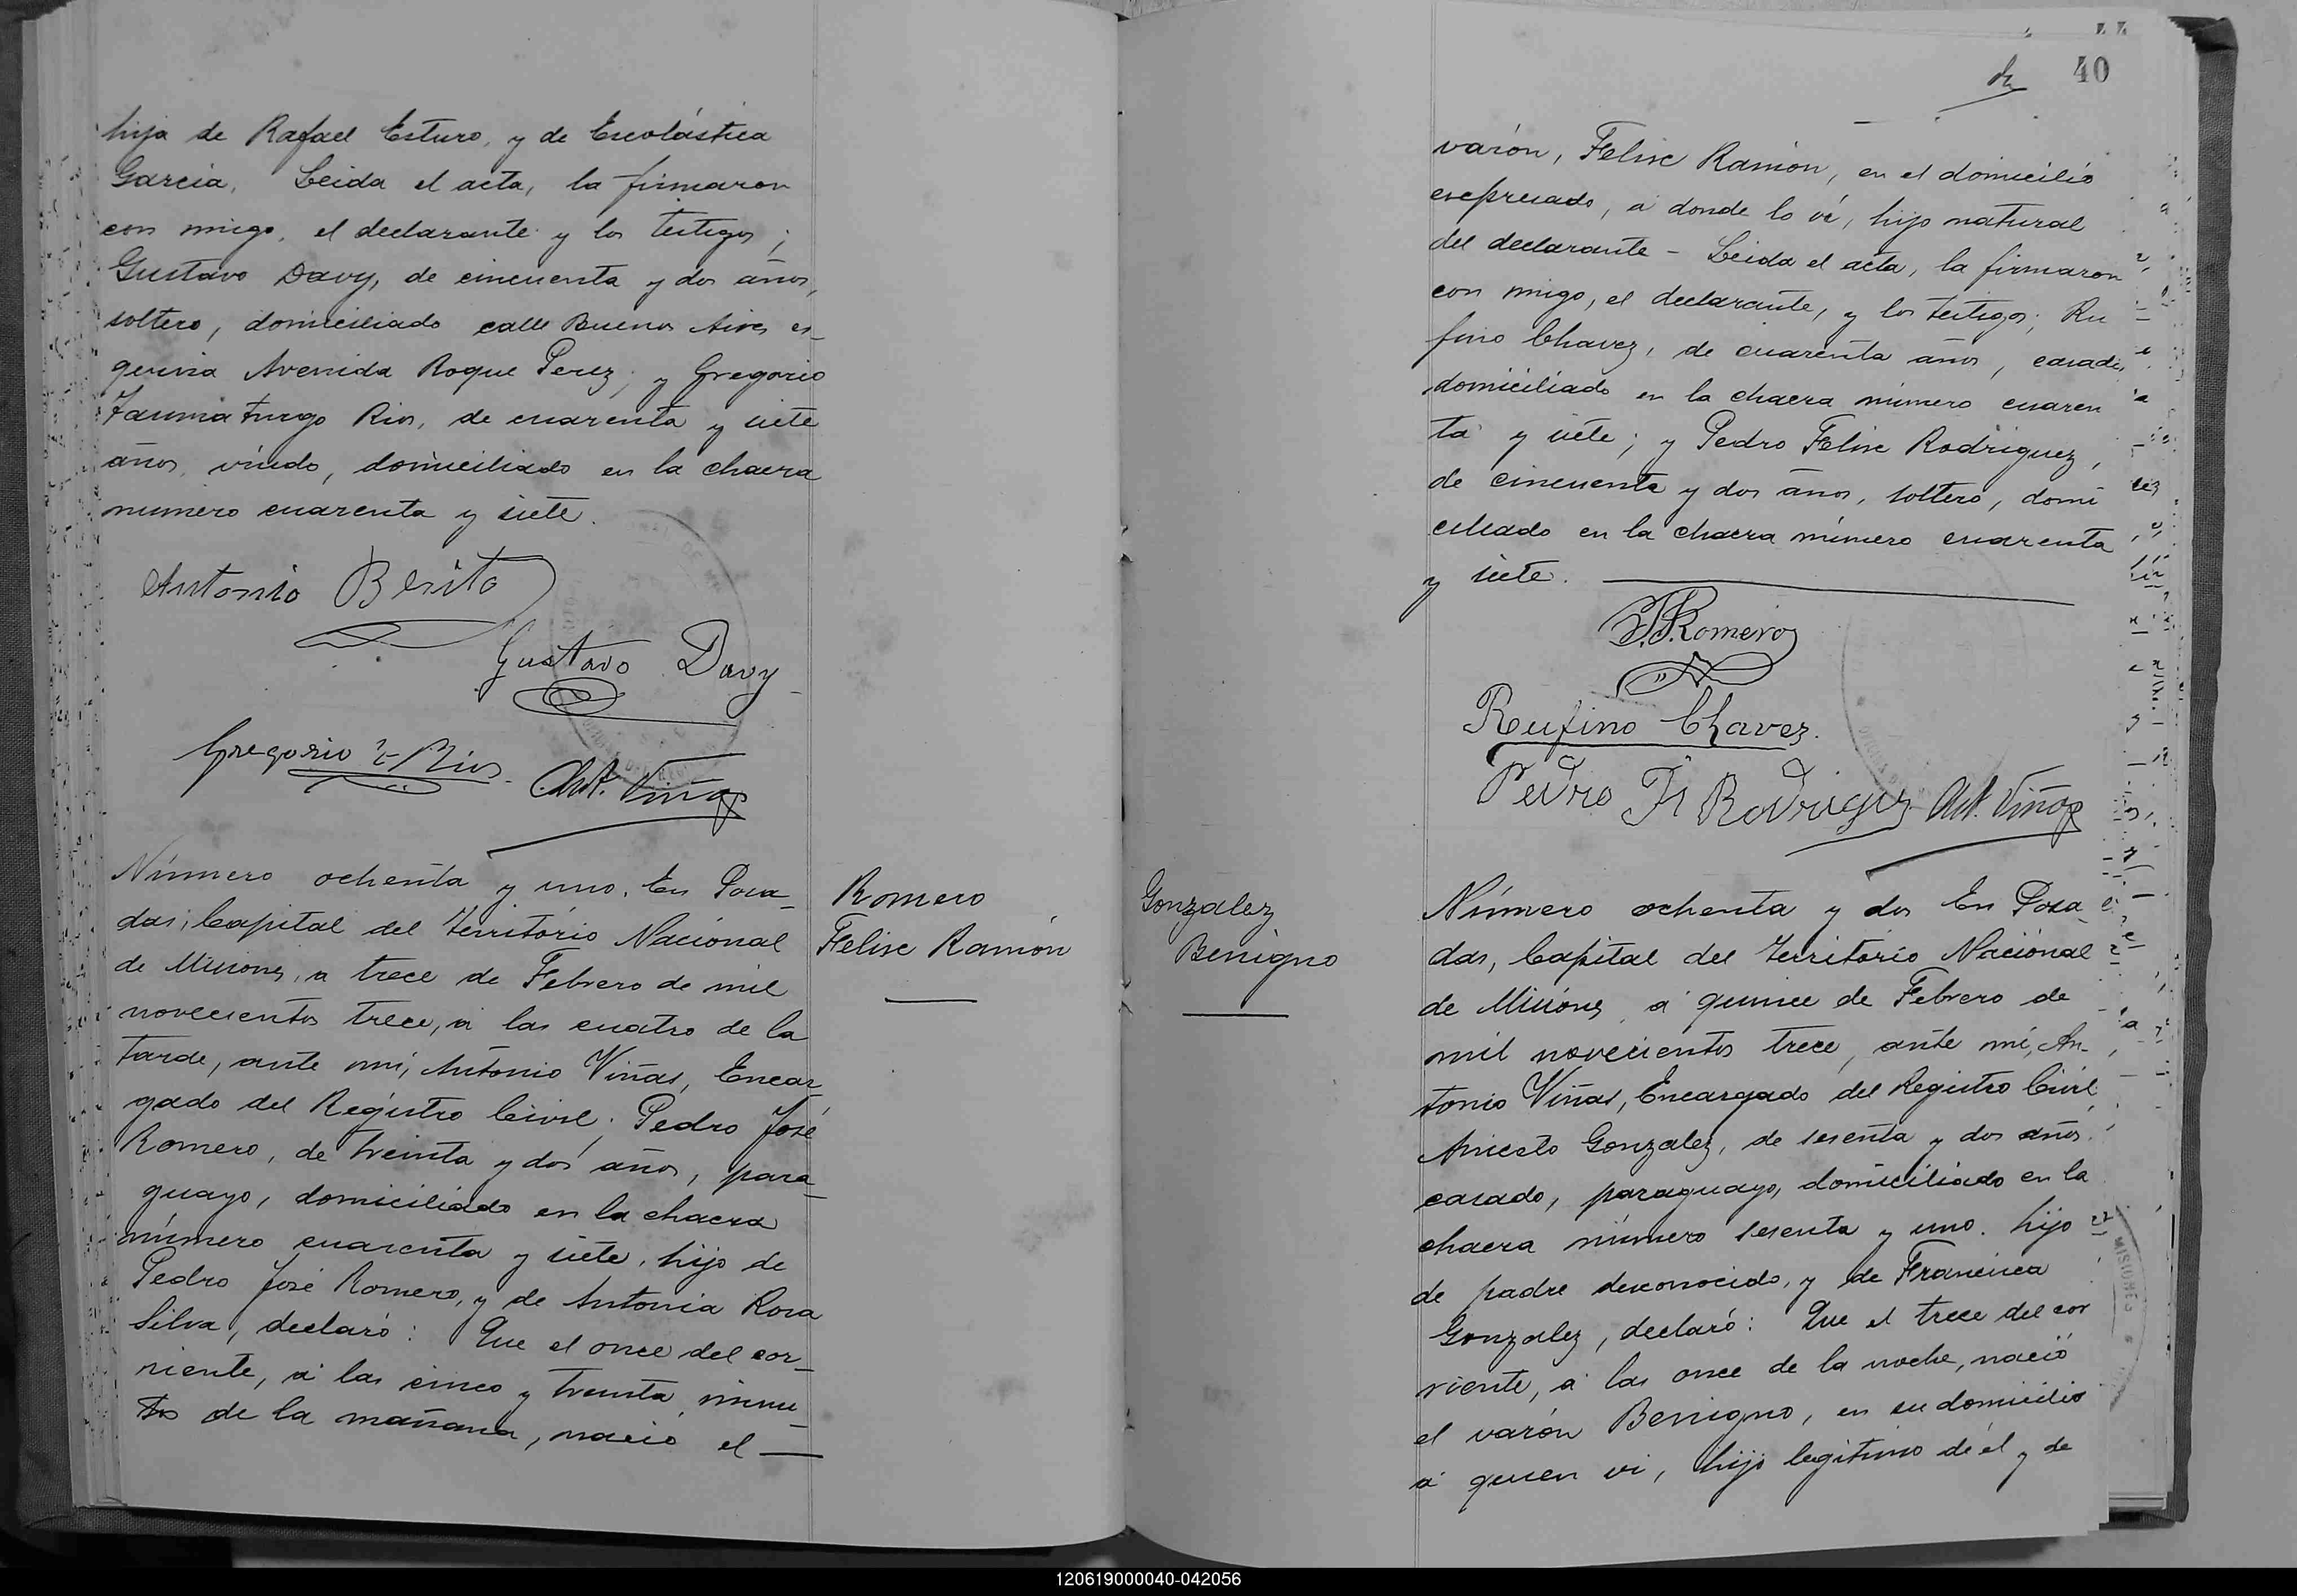 hija de Rafael Esturo, y de Escolástica
Garcia. Leida el acta, la firmaron
con migo, el declarante y los testigos;
Gustavo Davy, de cincuenta y dos años,
soltero, domiciliado calle Buenos Aires es_
quina Avenida Roque Perez; y Gregorio
Taumaturgo Rios, de cuarenta y siete
años, viudo, domiciliado en la chacra
número cuarenta y siete.
Antonio Benito
Gustavo Davy
Gregorio T Rios
Ant. Viñas
Número ochenta y uno. En Posa_
das, Capital del Territorio Nacional
de Misiones, a trece de Febrero de mil
novecientos trece, á las cuatro de la
tarde, ante mí, Antonio Viñas, Encar_
gado del Registro Civil; Pedro José
Romero, de treinta y dos años, para_
guayo, domiciliado en la chacra
número cuarenta y siete, hijo de
Pedro José Romero, y de Antonia Rosa
Silva, declaró: Que el once del cor_
riente, á las cinco y treinta minu_
tos de la mañana, nació el —
Romero
Felix Ramón
40
varón, Felix Ramón, en el domicilio
expresado, á donde lo ví, hijo natural
del declarante - Leida el acta, la firmaron
con migo, el declarante, y los testigos; Ru
fino Chavez, de cuarenta años, casado,
domiciliado en la chacra número cuaren
ta y siete; y Pedro Felix Rodriguez,
de cincuenta y dos años, soltero, domi
ciliado en la chacra número cuarenta
y siete.
P.J. Romero
Rufino Chavez.
Pedro F Rodriguez
Ant. Viñas
Gonzalez
Benigno
Número ochenta y dos En Posa_
das, Capital del Territorio Nacional
de Misiones á quince de Febrero de
mil novecientos trece, ante mí, An-
tonio Viñas, Encargado del Registro Civil
Aniceto Gonzalez, de sesenta y dos años.
casado, paraguayo, domiciliado en la
chacra número sesenta y uno. hijo
de padre desconocido, y de Francisca
Gonzalez, declaró: Que el trece del cor
riente, á las once de la noche, nació
el varón Benigno, en su domicilio
á quien ví, hijo legítimo de él y de
MISIONES
120619000040-042056